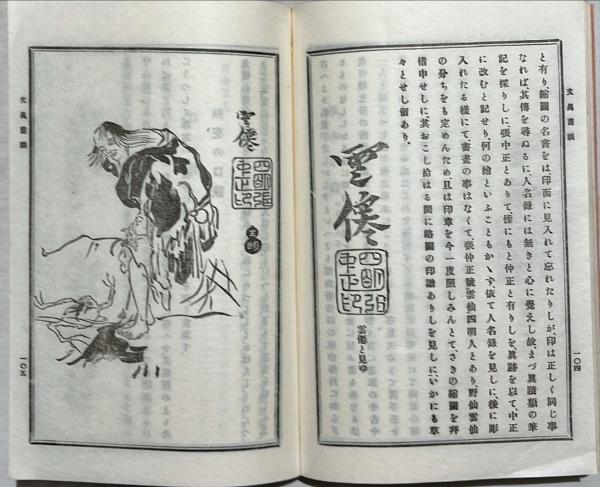 文晁畫談
一〇四
と有り、縮圖の名書をは、印面に見入れて忘れたりしが、印は正しく同じ事
なれば、其傳を尋ぬるに、人名錄には無きと心に覺えし故、まづ眞蹟類の筆
記を探りしに、張中正とありて傍にもと仲正と有りしを、眞跡を以て、中正
に改むと記せり、何の繪といふこともかゝず、依て人名錄を見しに、後に彫
入れたる樣にて、書畫の事はなくて、張仲正號雲仙四明人とあり、野仙雲仙
の分ちをも定めんため、且は印章を今一度照しみんとて、さきの縮圖を拜
借申せしに、其おこし給はる間に略圖の印譜ありしを見しに、いかにも草
々とせし留あり、
雲僊
四明張
中正印
雲僊と見ゆ
雲僊
四明張
中正印
文晁畫談
一〇五